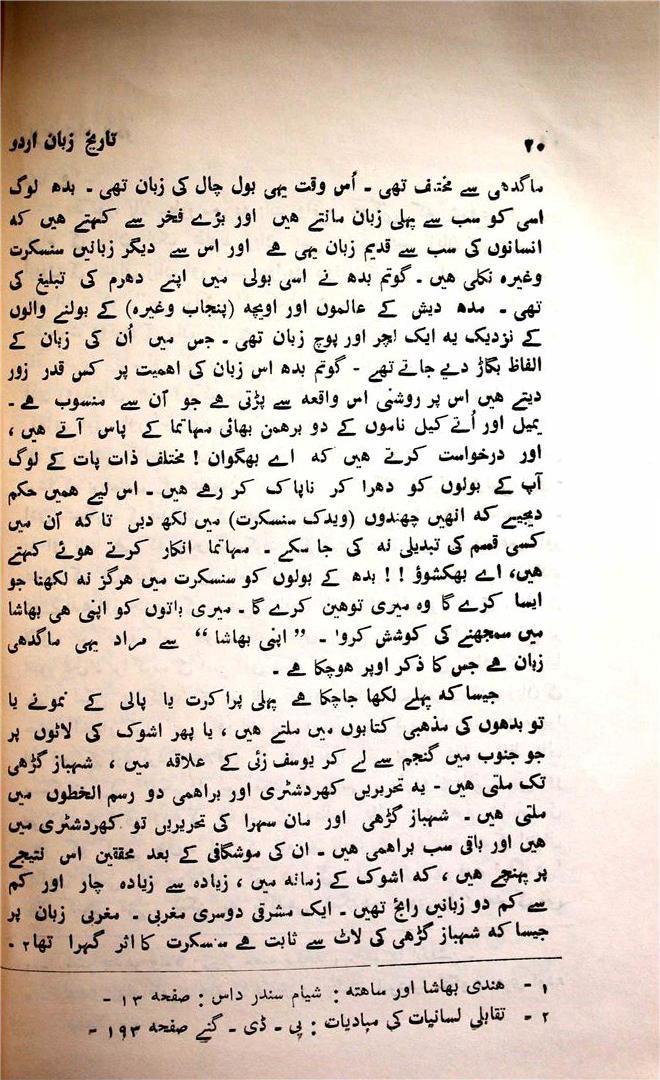 ۲۰
تاریخ زبان اردو
ماگدھی سے مختلف تھی ۔ اُس وقت یہی بول چال کی زبان تھی ۔ بدھ لوگ
اسی کو سب سے پہلی زبان مانتے ہیں اور بڑے فخر سے کہتے ہیں کہ
انسانوں کی سب سے قدیم زبان یہی ہے اور اس سے دیگر زبانیں سنسکرت
وغیرہ نکلی ہیں ۔ گوتم بدھ نے اسی بولی میں اپنے دھرم کی تبلیغ کی
تھی ۔ مدھ دیش کے عالموں اور اویچہ (پنجاب وغیرہ) کے بولنے والوں
کے نزدیک یہ ایک لچر اور پوچ زبان تھی ۔ جس میں اُن کی زبان کے
الفاظ بگاڑ دیے جاتے تھے - گوتم بدھ اس زبان کی اہمیت پر کس قدر زور
دیتے ہیں اس پر روشنی اس واقعہ سے پڑتی ہے جو اُن سے منسوب ہے ۔
یمیل اور اُتے کیل ناموں کے دو برھمن بھائی مہاتما کے پاس آتے ہیں ،
اور درخواست کرتے ہیں کہ اے بھگوان ! مختلف ذات پات کے لوگ
آپ کے بولوں کو دھرا کر ناپاک کر رہے ہیں ۔ اس لیے ہمیں حکم
دیجیے کہ انھیں چھندوں (ویدک سنسکرت) میں لکھ دیں تاکہ اُن میں
کسی قسم کی تبدیلی نہ کی جا سکے ۔ مہاتما انکار کرتے ہوئے کہتے
ہیں، اے بھکشوؤ ! ! بدھ کے بولوں کو سنسکرت میں ہرگز نہ لکھنا جو
ایسا کرے گا وہ میری توہین کرے گا ۔ میری باتوں کو اپنی ہی بھاشا
میں سمجھنے کی کوشش کرو۱ ۔ ”اپنی بھاشا“ سے مراد یہی ماگدھی
زبان ہے جس کا ذکر اوپر ہوچکا ہے ۔
جیسا کہ پہلے لکھا جاچکا ہے پہلی پراکرت یا پالی کے نمونے یا
تو بدھوں کی مذہبی کتابوں میں ملتے ہیں ، یا پھر اشوک کی لاٹوں پر
جو جنوب میں گنجم سے لے کر یوسف زئی کے علاقہ میں ، شہباز گڑھی
تک ملتی ہیں - یہ تحریریں کھردشٹری اور براہمی دو رسم الخطوں میں
ملتی ہیں ۔ شہباز گڑھی اور مان سہرا کی تحریریں تو کھردشٹری میں
ہیں اور باقی سب براہمی ہیں ۔ ان کی موشگافی کے بعد محققین اس نتیجے
پر پہنچے ہیں ، کہ اشوک کے زمانہ میں ، زیادہ سے زیادہ چار اور کم
سے کم دو زبانیں رائج تھیں ۔ ایک مشرقی دوسری مغربی ۔ مغربی زبان پر
جیسا کہ شہباز گڑھی کی لاٹ سے ثابت ہے سنسکرت کا اثر گہرا تھا۲ ۔
۱ - ہندی بھاشا اور ساھتہ : شیام سندر داس : صفحہ ۱۳ -
۲ - تقابلی لسانیات کی مبادیات : پی ۔ ڈی ۔ گنے صفحہ ۱۹۳ -